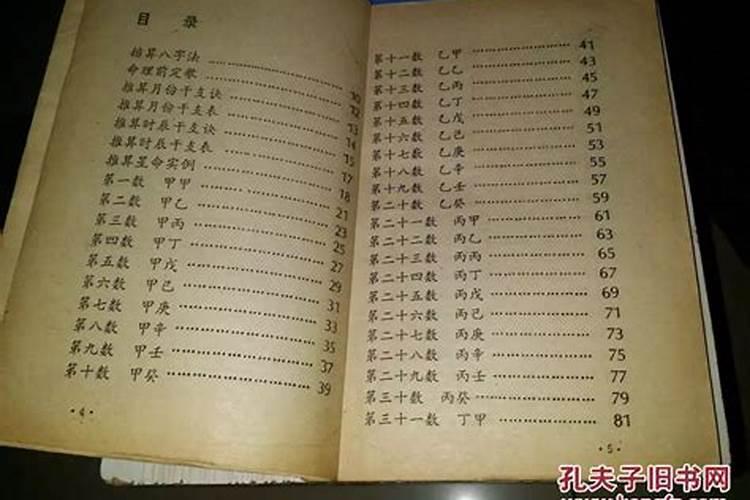 目 录
推算八字法 ………… 10
命理前定歌 ………… 12
推算月份干支诀 ………… 13
推算月份干支表 ………… 14
推算时辰干支诀 ………… 15
推算时辰干支表 ………… 17
推算星命实例 ………… 18
第一数 甲甲 ………… 21
第二数 甲乙 ………… 23
第三数 甲丙 ………… 25
第四数 甲丁 ………… 27
第五数 甲戊 ………… 29
第六数 甲己 ………… 31
第七数 甲庚 ………… 33
第八数 甲辛 ………… 35
第九数 甲壬 ………… 37
第十数 甲癸 ………… 39
·4·
第十一数 乙甲 ………… 41
第十二数 乙乙 ………… 43
第十三数 乙丙 ………… 45
第十四数 乙丁 ………… 47
第十五数 乙戊 ………… 49
第十六数 乙己 ………… 51
第十七数 乙庚 ………… 53
第十八数 乙辛 ………… 55
第十九数 乙壬 ………… 57
第二十数 乙癸 ………… 59
第二十一数 丙甲 ………… 61
第二十二数 丙乙 ………… 63
第二十三数 丙丙 ………… 65
第二十四数 丙丁 ………… 67
第二十五数 丙戊 ………… 69
第二十六数 丙己 ………… 71
第二十七数 丙庚 ………… 73
第二十八数 丙辛 ………… 75
第二十九数 丙壬 ………… 77
第三十数 丙癸 ………… 79
第三十一数 丁甲 ………… 81
·5·
孔夫子旧书网